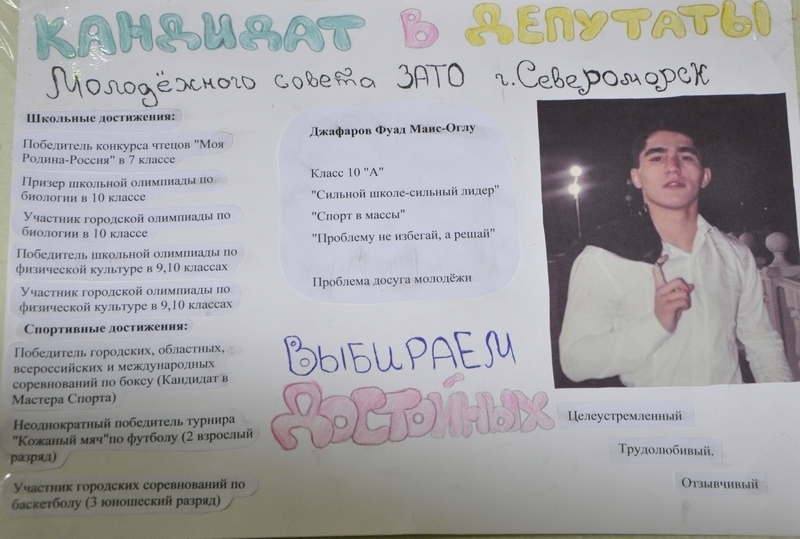 КАНДИДАТ В ДЕПУТАТЫ
Молодёжного совета ЗАТО г.Североморск
Школьные достижения:
Победитель конкурса чтецов "Моя
Родина-Россия" в 7 классе
Призер школьной олимпиады по
биологии в 10 классе
Участник городской олимпиады по
биологии в 10 классе
Победитель школьной олимпиады по
физической культуре в 9,10 классах
Участник городской олимпиады по
физической культуре в 9,10 классах
Спортивные достижения:
Победитель городских, областных,
всероссийских и международных
соревнований по боксу (Кандидат в
Мастера Спорта)
Неоднократный победитель турнира
"Кожаный мяч"по футболу (2 взрослый
разряд)
Участник городских соревнований по
баскетболу (3 юношеский разряд)
Джафаров Фуад Маис-Оглу
Класс 10 "А"
"Сильной школе-сильный лидер"
"Спорт в массы"
"Проблему не избегай, а решай"
Проблема досуга молодёжи
ВЫБИРАЕМ
ДОСТОЙНЫХ
Целеустремленный
Трудолюбивый.
Отзывчивый